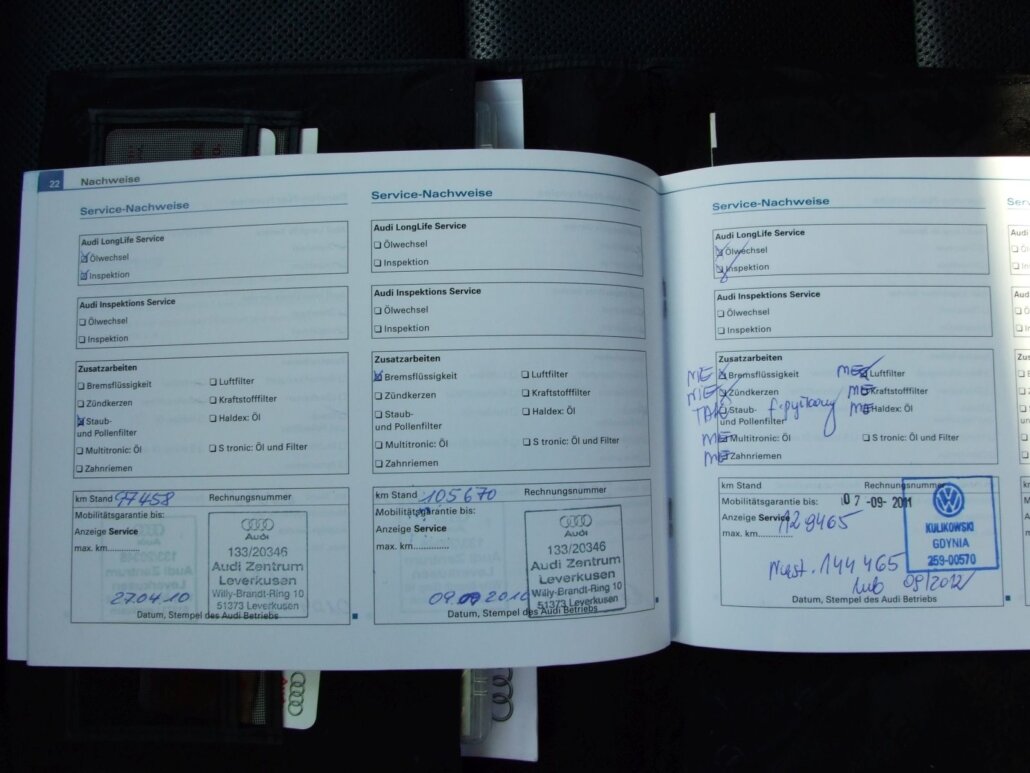 22 Nachweise
Service-Nachweise
Audi LongLife Service
Ölwechsel
Inspektion
Audi Inspektions Service
Ölwechsel
Inspektion
Zusatzarbeiten
Bremsflüssigkeit
Luftfilter
Zündkerzen
Kraftstofffilter
Staub-
und Pollenfilter
Haldex: Öl
Multitronic: Öl
S tronic: Öl und Filter
Zahnriemen
km Stand 97458 Rechnungsnummer
Mobilitätsgarantie bis:
Anzeige Service
max. km..............
Audi
133/20346
Audi Zentrum
Leverkusen
Willy-Brandt-Ring 10
51373 Leverkusen
27.04.10
Datum, Stempel des Audi Betriebs
Service-Nachweise
Audi LongLife Service
Ölwechsel
Inspektion
Audi Inspektions Service
Ölwechsel
Inspektion
Zusatzarbeiten
Bremsflüssigkeit
Luftfilter
Zündkerzen
Kraftstofffilter
Staub-
und Pollenfilter
Haldex: Öl
Multitronic: Öl
S tronic: Öl und Filter
Zahnriemen
km Stand 105670 Rechnungsnummer
Mobilitätsgarantie bis:
Anzeige Service
max. km..............
Audi
133/20346
Audi Zentrum
Leverkusen
Willy-Brandt-Ring 10
51373 Leverkusen
09.09.2010
Datum, Stempel des Audi Betriebs
Service-Nachweise
Audi LongLife Service
Ölwechsel
Inspektion
Audi Inspektions Service
Ölwechsel
Inspektion
Zusatzarbeiten
NIE Bremsflüssigkeit
NIE Luftfilter
NIE Zündkerzen
NIE Kraftstofffilter
TAK Staub-
und Pollenfilter
NIE Haldex: Öl
NIE Multitronic: Öl
S tronic: Öl und Filter
NIE Zahnriemen
km Stand Rechnungsnummer
Mobilitätsgarantie bis: 07-09-2011
Anzeige Service 129465
max. km..............
KULIKOWSKI
GDYNIA
259-00570
Nast. 144465
lub 09/2012
Datum, Stempel des Audi Betriebs